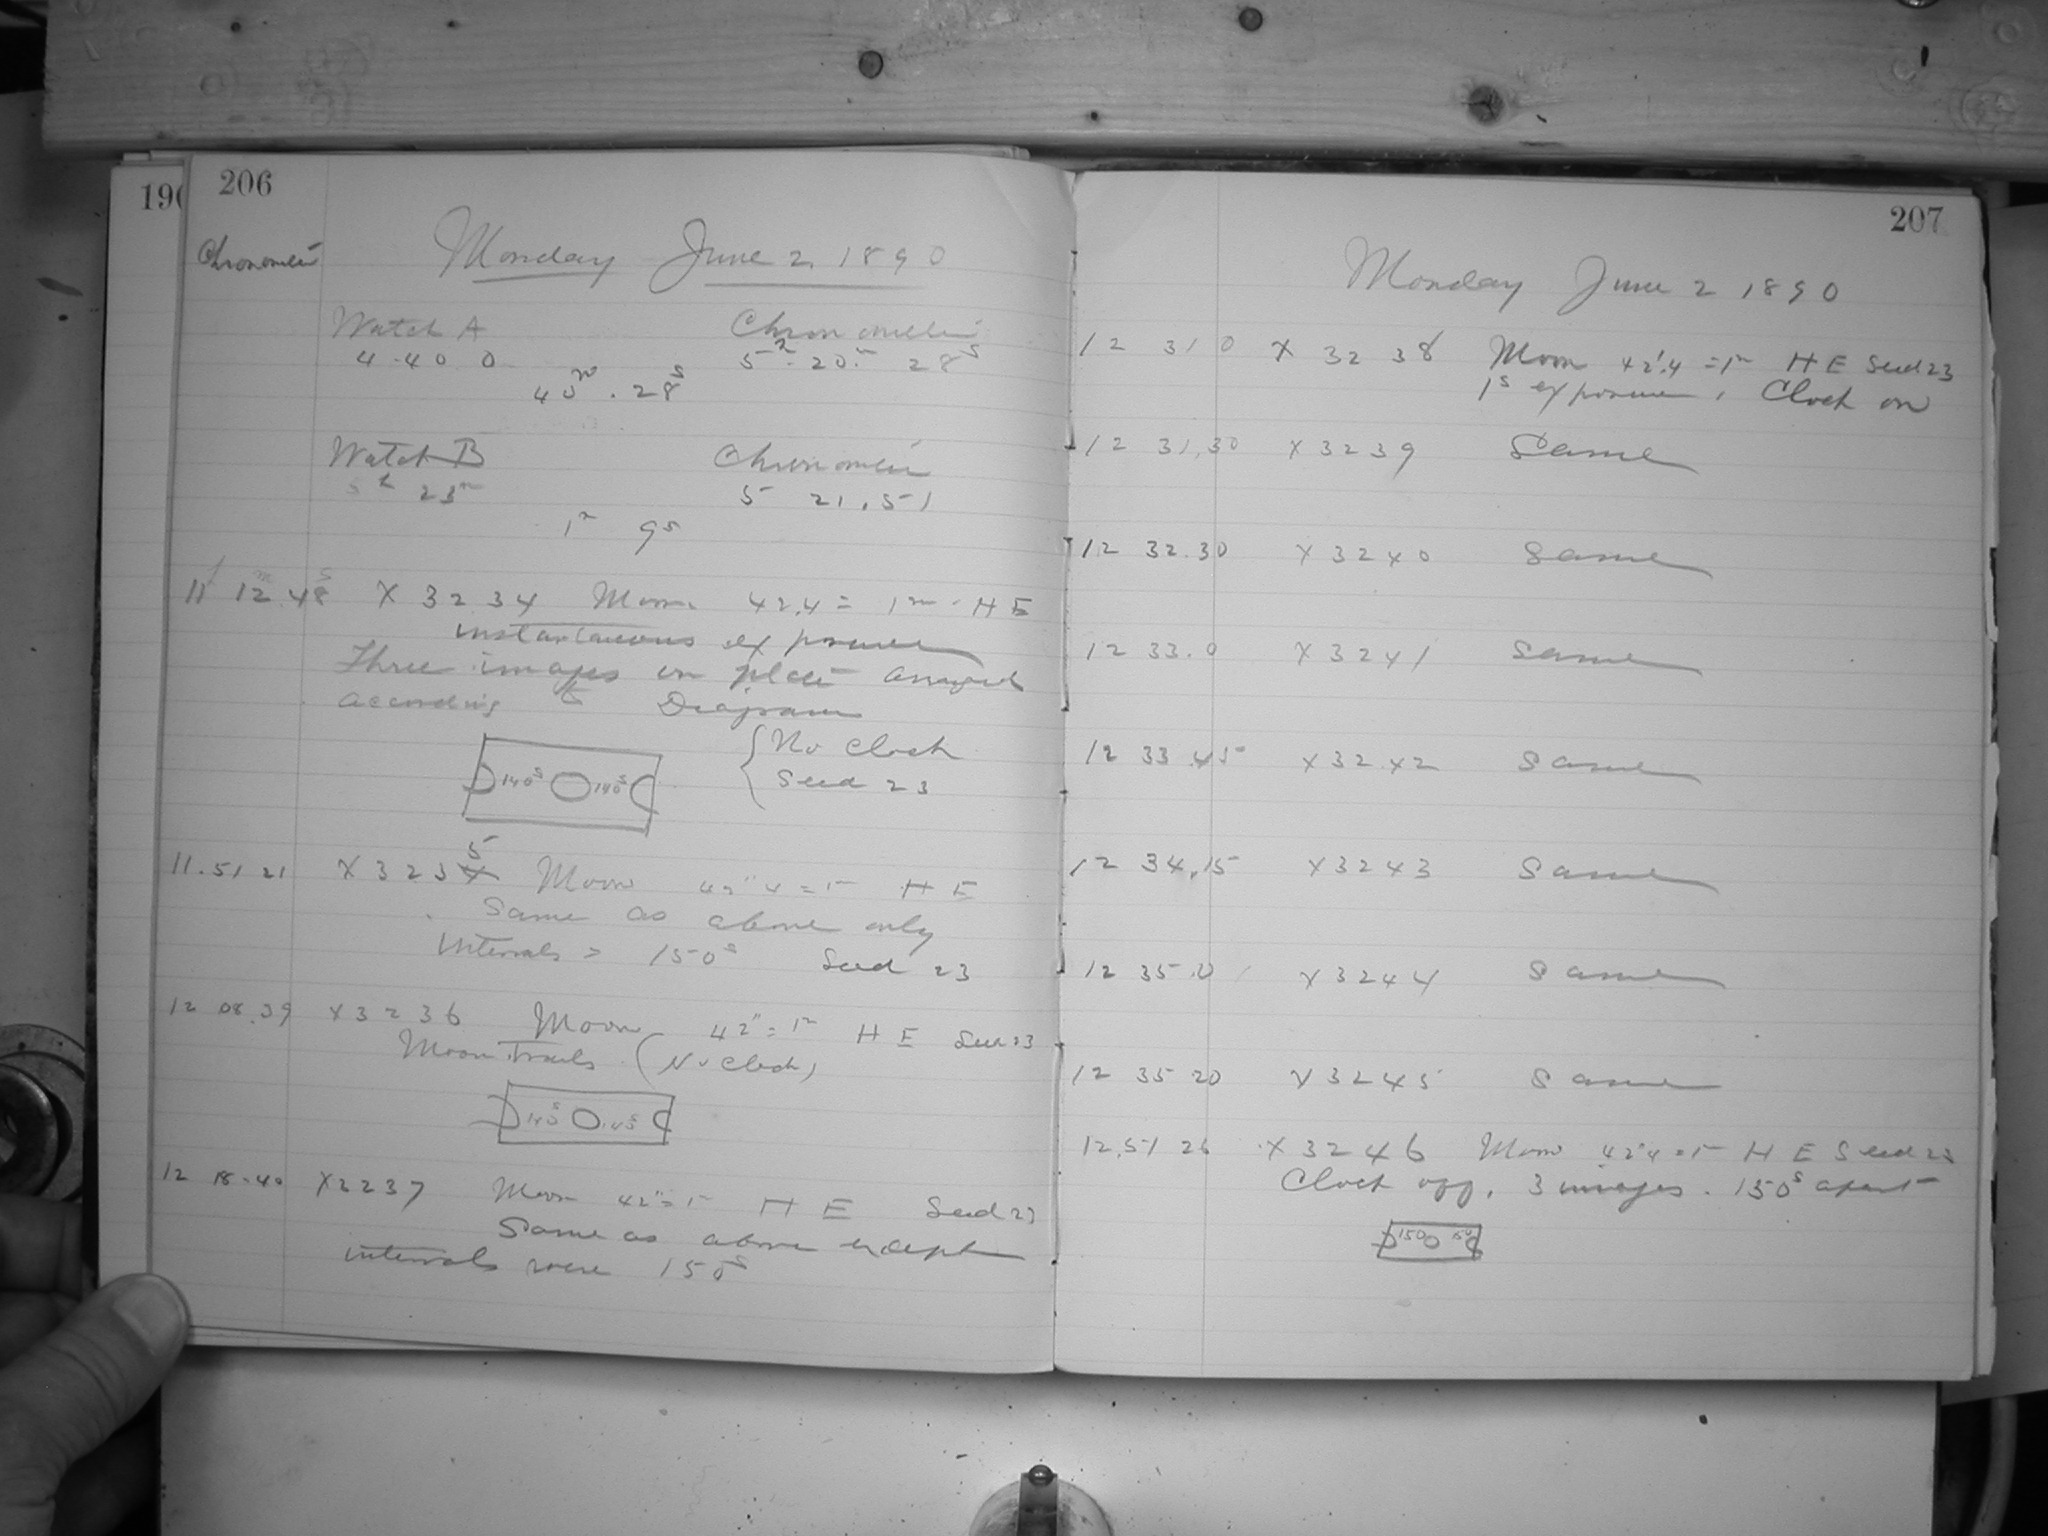 190
206
Chronometer
Monday June 2, 1890
Watch A Chronometer
4 40 0 5h 20m 28s
40m. 28s
Watch B Chronometer
5h 23m 5 21.51
1m 9s
11 12m 48s X 3234 Moon 42.4 = 1m HE
instantaneous exposure
Three images on plate arranged
according to Diagram
No Clock
140s 140s Seed 23
11.51 21 X 3235 Moon 42".4 = 1m HE
Same as above only
Intervals = 150s Seed 23
12 08.39 X3236 Moon 42" = 1m HE Seed 23
Moon Trails (No Clock)
12 18.40 X3237 Moon 42" = 1m HE Seed 23
Same as above except
intervals were 150s
207
Monday June 2 1890
12 31 0 X 3238 Moon 42".4 = 1m HE Seed 23
1s exposure, Clock on
12 31,30 X3239 Same
12 32.30 X3240 Same
12 33.0 X3241 Same
12 33.45 X3242 Same
12 34.15 X3243 Same
12 35.0 X3244 Same
12 35 20 X3245 Same
12.51 26 X3246 Moon 42"4 = 1m HE Seed 23
Clock off, 3 images. 150s apart
150 150